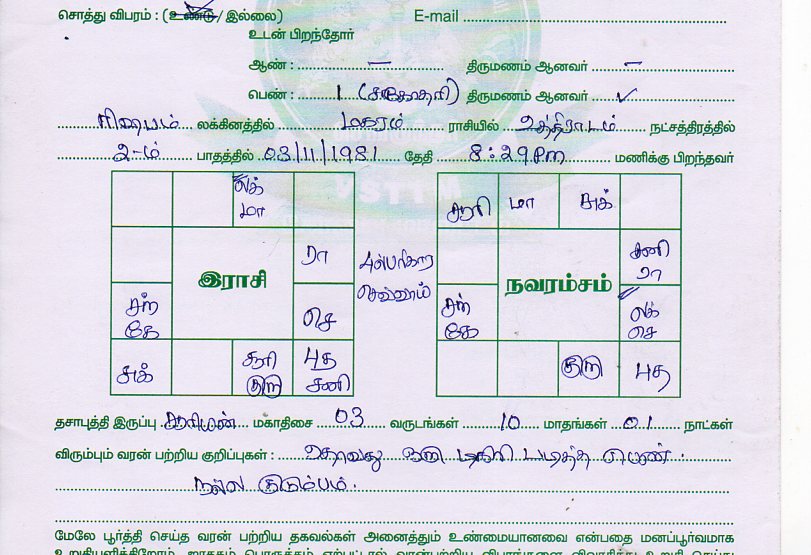 சொத்து விபரம் : (உண்டு / இல்லை) E-mail
உடன் பிறந்தோர்
ஆண் : — திருமணம் ஆனவர் —
பெண் : 1 (சகோதரி) திருமணம் ஆனவர் ✓
ரிஷபம் லக்கினத்தில் மகரம் ராசியில் உத்திராடம் நட்சத்திரத்தில்
2-ம் பாதத்தில் 03/11/1981 தேதி 8:29Pm மணிக்கு பிறந்தவர்
லக் மா
சூரி மா சுக்
ரா
சனி ரா
இராசி
பரிகார செவ்வாய்
நவரம்சம்
சந் கே
செ
சந் கே
லக் செ
சுக்
சூரி குரு
புத சனி
குரு
புத
தசாபுத்தி இருப்பு சூரியன் மகாதிசை 03 வருடங்கள் 10 மாதங்கள் 01 நாட்கள்
விரும்பும் வரன் பற்றிய குறிப்புகள் : ஏதாவது ஒரு டிகிரி படித்த பெண்.
நல்ல குடும்பம்.
மேலே பூர்த்தி செய்த வரன் பற்றிய தகவல்கள் அனைத்தும் உண்மையானவை என்பதை மனப்பூர்வமாக